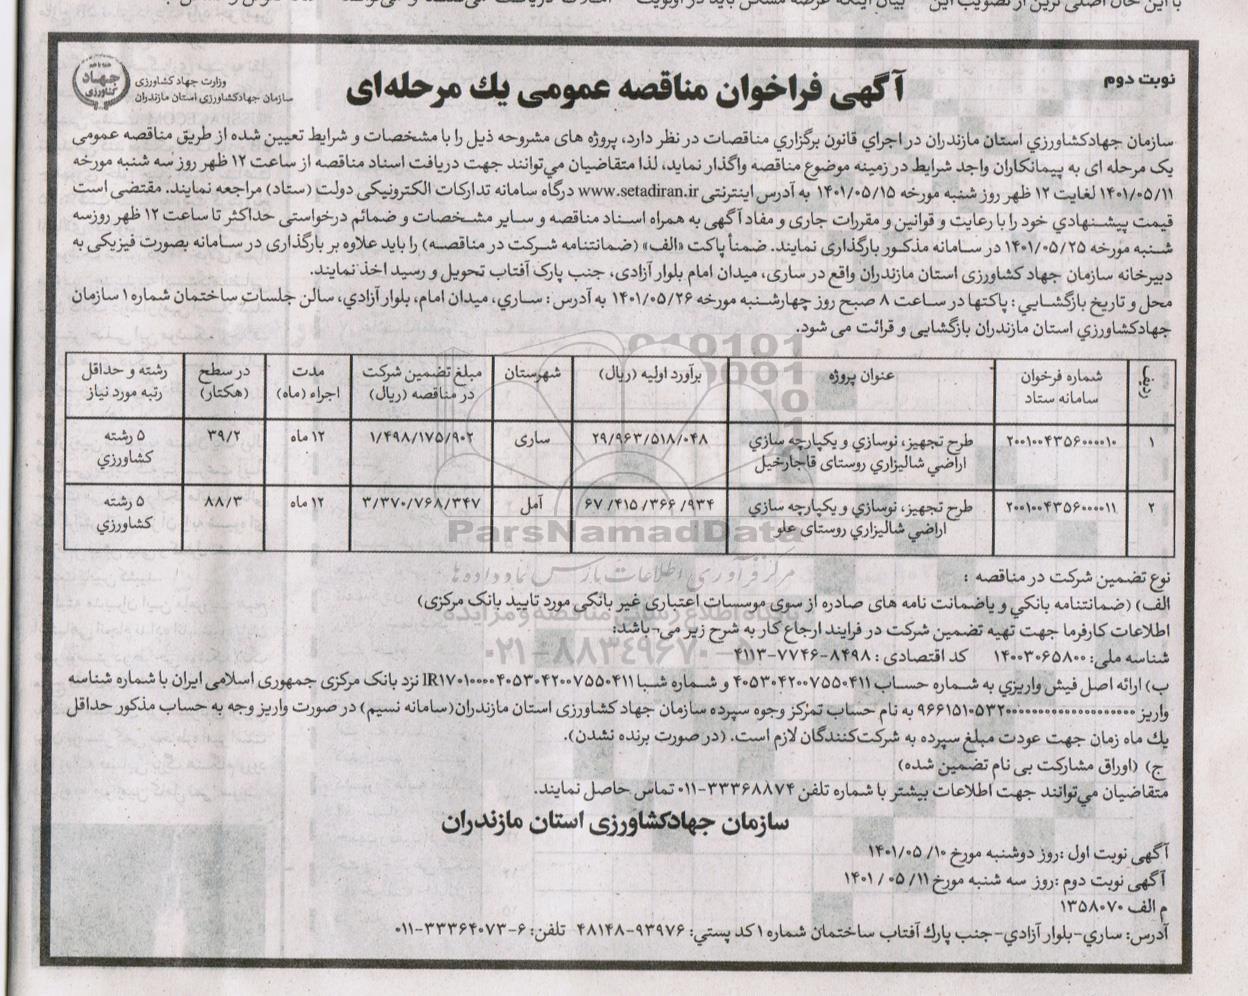 نوبت دوم
آگهی فراخوان مناقصه عمومی یک مرحله‌ای
وزارت جهاد کشاورزی
سازمان جهاد کشاورزی استان مازندران
جهاد
کشاورزی
سازمان جهادکشاورزي استان مازندران در اجراي قانون برگزاري مناقصات در نظر دارد، پروژه های مشروحه ذیل را با مشخصات و شرایط تعیین شده از طریق مناقصه عمومی
یک مرحله ای به پیمانکاران واجد شرایط در زمینه موضوع مناقصه واگذار نماید، لذا متقاضیان می‌توانند جهت دریافت اسناد مناقصه از ساعت ۱۲ ظهر روز سه شنبه مورخه
۱۴۰۱/۰۵/۱۱ لغایت ۱۲ ظهر روز شنبه مورخه ۱۴۰۱/۰۵/۱۵ به آدرس اینترنتی www.setadiran.ir درگاه سامانه تدارکات الکترونیکی دولت (ستاد) مراجعه نمایند. مقتضی است
قیمت پیشنهادي خود را با رعایت و قوانین و مقررات جاری و مفاد آگهی به همراه اسناد مناقصه و سایر مشخصات و ضمائم درخواستی حداکثر تا ساعت ۱۲ ظهر روزسه
شنبه مورخه ۱۴۰۱/۰۵/۲۵ در سامانه مذکور بارگذاری نمایند. ضمناً پاکت «الف» (ضمانتنامه شرکت در مناقصه) را باید علاوه بر بارگذاری در سامانه بصورت فیزیکی به
دبیرخانه سازمان جهاد کشاورزی استان مازندران واقع در ساری، میدان امام بلوار آزادی، جنب پارک آفتاب تحویل و رسید اخذ نمایند.
محل و تاریخ بازگشایي : پاکتها در ساعت ۸ صبح روز چهارشنبه مورخه ۱۴۰۱/۰۵/۲۶ به آدرس : ساري، میدان امام، بلوار آزادي، سالن جلسات ساختمان شماره ۱ سازمان
جهادکشاورزي استان مازندران بازگشایی و قرائت می شود.
ردیف | شماره فراخوان سامانه ستاد | عنوان پروژه | برآورد اولیه (ریال) | شهرستان | مبلغ تضمین شرکت در مناقصه (ریال) | مدت اجراء (ماه) | در سطح (هکتار) | رشته و حداقل رتبه مورد نیاز
۱ | ۲۰۰۱۰۰۴۳۵۶۰۰۰۰۱۰ | طرح تجهیز، نوسازي و یکپارچه سازي اراضي شالیزاري روستای قاجارخیل | ۲۹/۹۶۳/۵۱۸/۰۴۸ | ساری | ۱/۴۹۸/۱۷۵/۹۰۲ | ۱۲ ماه | ۳۹/۲ | ۵ رشته کشاورزي
۲ | ۲۰۰۱۰۰۴۳۵۶۰۰۰۰۱۱ | طرح تجهیز، نوسازي و یکپارچه سازي اراضي شالیزاري روستای علو | ۶۷/۴۱۵/۳۶۶/۹۳۴ | آمل | ۳/۳۷۰/۷۶۸/۳۴۷ | ۱۲ ماه | ۸۸/۳ | ۵ رشته کشاورزي
ParsNamadData
مرکز فرآوری اطلاعات پارس نماد داده ها
نوع تضمین شرکت در مناقصه :
الف) (ضمانتنامه بانکي و یاضمانت نامه های صادره از سوی موسسات اعتباری غیر بانکی مورد تایید بانک مرکزی)
اطلاعات کارفرما جهت تهیه تضمین شرکت در فرایند ارجاع کار به شرح زیر می-باشد:
شناسه ملی: ۱۴۰۰۳۰۶۵۸۰۰ کد اقتصادی : ۸۴۹۸-۷۷۴۶-۴۱۱۳
۰۲۱-۸۸۳۴۹۶۷۰-۵
ب) ارائه اصل فیش واریزي به شماره حساب ۴۰۵۳۰۴۲۰۰۷۵۵۰۴۱۱ و شماره شبا IR۱۷۰۱۰۰۰۰۴۰۵۳۰۴۲۰۰۷۵۵۰۴۱۱ نزد بانک مرکزی جمهوری اسلامی ایران با شماره شناسه
واریز به نام حساب تمرکز وجوه سپرده سازمان جهاد کشاورزی استان مازندران(سامانه نسیم) در صورت واریز وجه به حساب مذکور حداقل
یک ماه زمان جهت عودت مبلغ سپرده به شرکت‌کنندگان لازم است. (در صورت برنده نشدن).
ج) (اوراق مشارکت بی نام تضمین شده)
متقاضیان می‌توانند جهت اطلاعات بیشتر با شماره تلفن ۳۳۳۶۸۸۷۴-۰۱۱ تماس حاصل نمایند.
سازمان جهادکشاورزی استان مازندران
آگهی نوبت اول :روز دوشنبه مورخ ۱۰/ ۱۴۰۱/۰۵
آگهی نوبت دوم :روز سه شنبه مورخ ۱۱/ ۰۵ / ۱۴۰۱
م الف ۱۳۵۸۰۷۰
آدرس: ساري-بلوار آزادي-جنب پارک آفتاب ساختمان شماره ۱ کد پستي: ۹۳۹۷۶-۴۸۱۴۸ تلفن: ۶-۳۳۳۶۴۰۷۳-۰۱۱